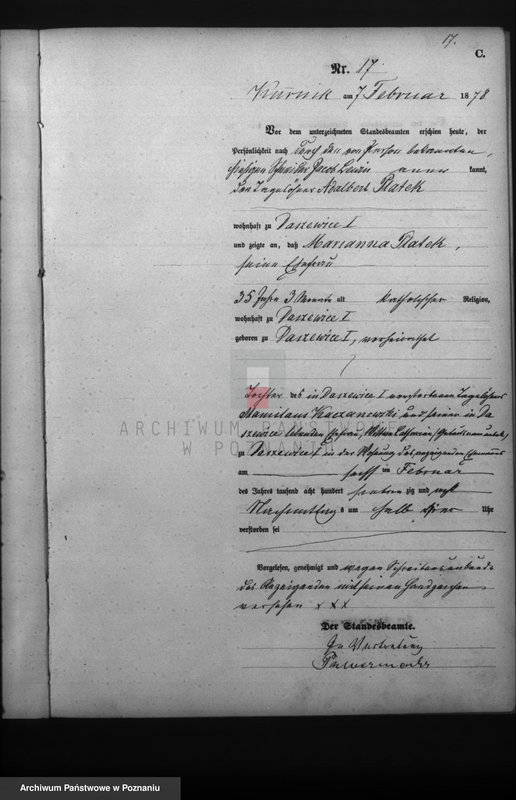 17.
C.
Nr. 17
Kurnik am 7 Februar 1878
Vor dem unterzeichneten Standesbeamten erschien heute, der
Persönlichkeit nach durch den von Person bekannten,
Schreiber Jacob kannt,
den Tagelöhner Adalbert Ratek
wohnhaft zu Daszewice I
und zeigte an, daß Marianna Ratek,
seine Ehefrau
35 Jahre 3 Monate alt katholischer Religion,
wohnhaft zu Daszewice I
geboren zu Daszewice I, verheirathet
Tochter des in Daszewice I verstorbenen Tagelöhners
Stanislaus Kaczanowski und seiner in Da
szewice lebenden Ehefrau,
ARCHIWUM PAŃSTWOWE
W POZNANIU
zu Daszewice I in der Wohnung des anzeigenden Ehemanns
am sechs ten Februar
des Jahres tausend acht hundert sieben zig und acht
Nachmittags um halb vier Uhr
verstorben sei
Vorgelesen, genehmigt und wegen Schreibensunkunde
des Anzeigenden mit seinem Handzeichen
versehen x x x
Der Standesbeamte.
In Vertretung
Archiwum Państwowe w Poznaniu